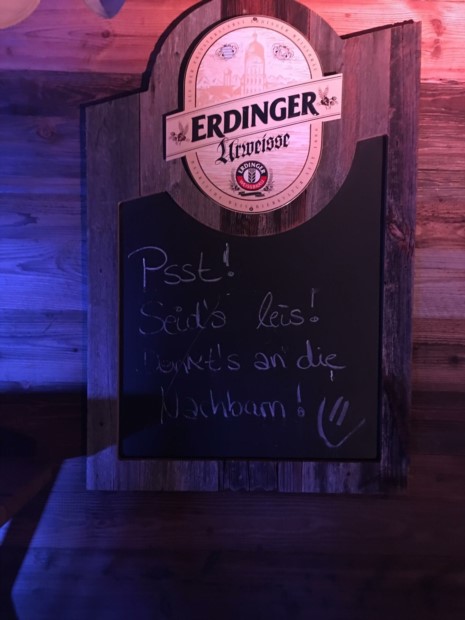 ERDINGER
Urweisse
ERDINGER
Psst!
Seid's leis!
Denkt's an die
Nachbarn!